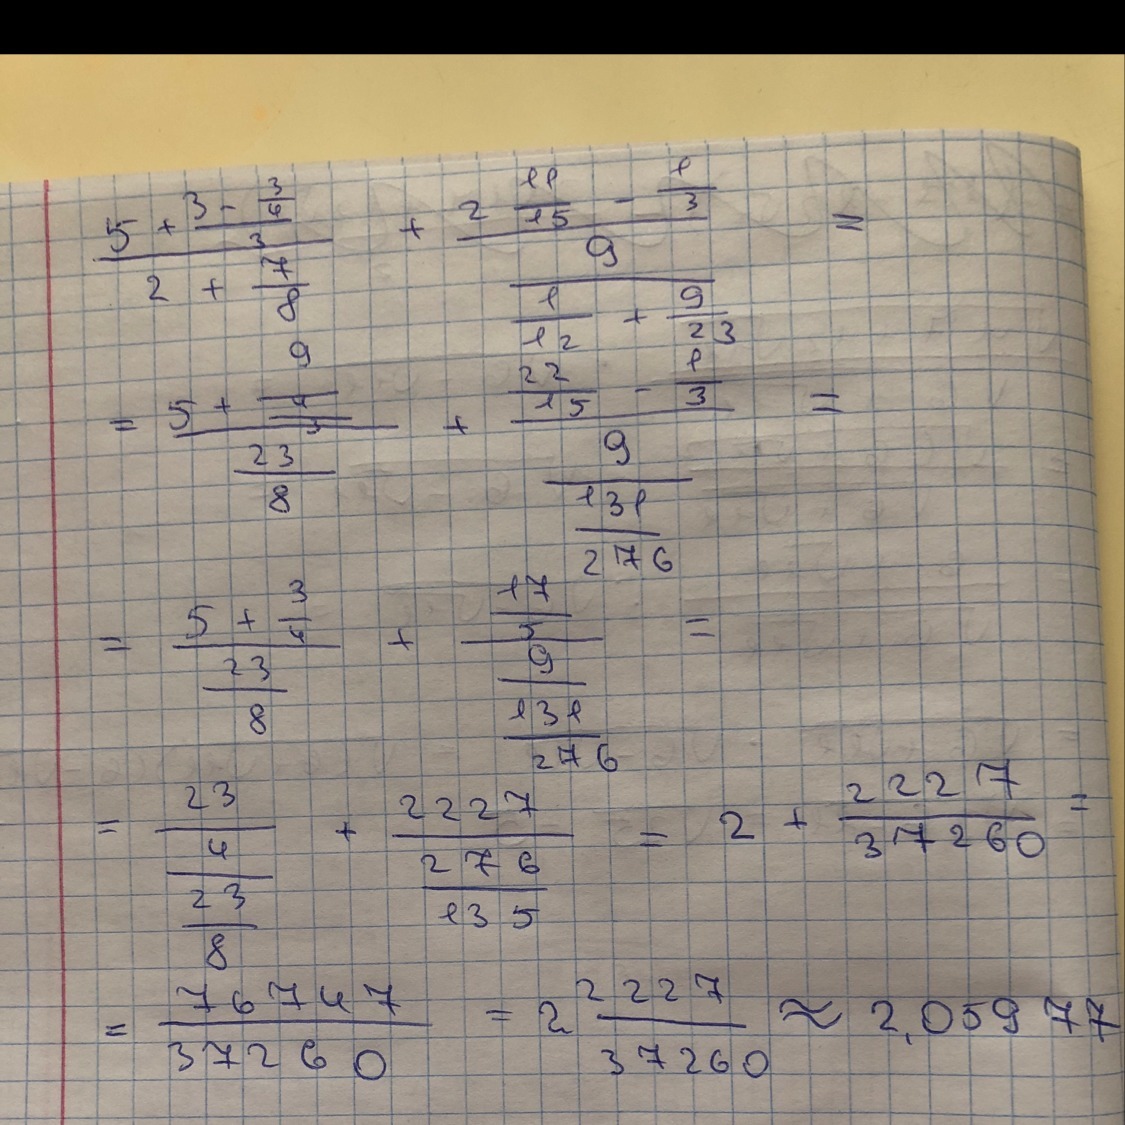 (5 + (3 - 3/4)/3)/(2 + 7/8) + (2 11/15 - 1/3)/(9/(1/12 + 9/23)) =
= (5 + (9/4)/3)/(23/8) + (22/15 - 1/3)/(9/(131/276)) =
= (5 + 3/4)/(23/8) + (17/5)/(9/(131/276)) =
= (23/4)/(23/8) + 2227/(276/135) = 2 + 2227/37260 =
= 76747/37260 = 2 2227/37260 ≈ 2,05977